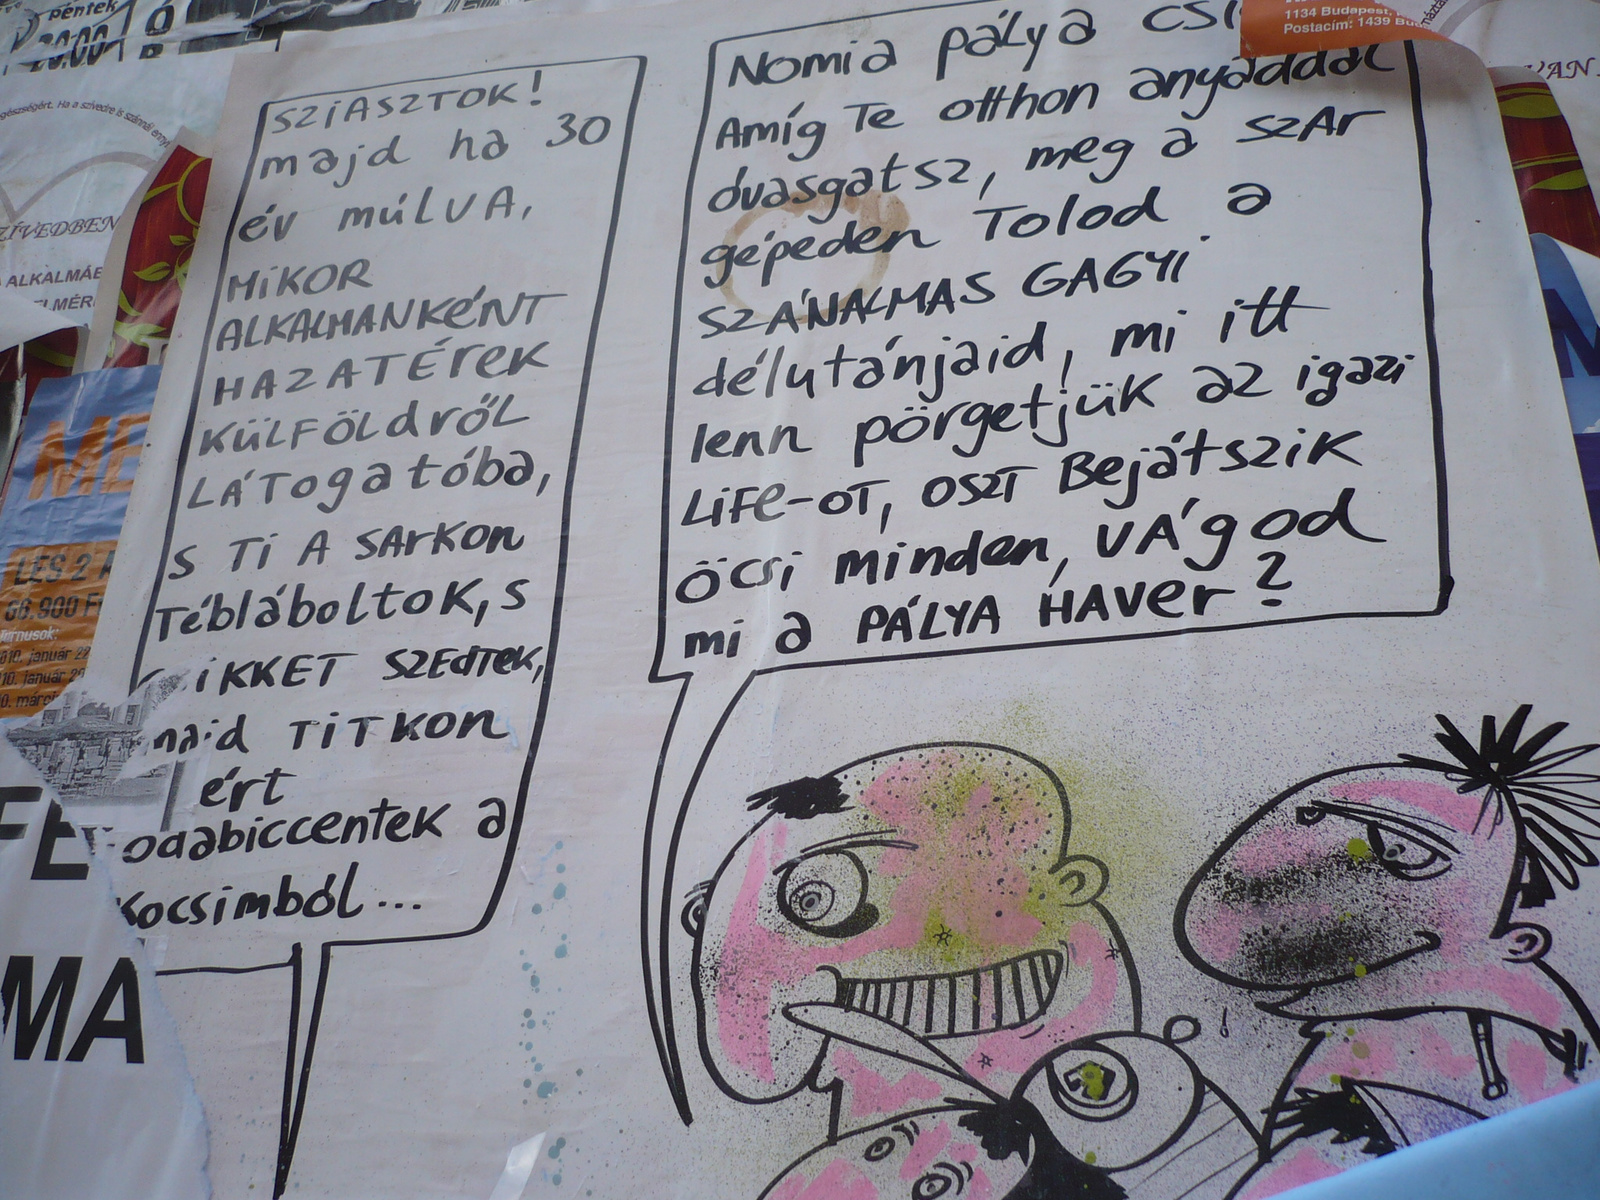 péntek
20:00
egészségért. Ha a szívedre is szánnál
SZÍVEDBEN
ME
LES 2
66.900 F
2010. január
FE
MA
SZIASZTOK!
majd ha 30
év múlva,
MIKOR
ALKALMANKÉNT
HAZATÉREK
KÜLFÖLDRŐL
LÁTOGATÓBA,
S TI A SARKON
TÉBLÁBOLTOK, S
IKKET SZEDTEK,
majd TITKON
ért
odabiccentek a
kocsimból...
Nomia pálya csi
Amíg Te otthon anyáddal
óvasgatsz, meg a szar
gépeden Tolod a
SZÁNALMAS GAGYI
délutánjaid, mi itt
lenn pörgetjük az igazi
LIFE-OT, OSZT Bejátszik
öcsi minden, VÁGOD
mi a PÁLYA HAVER?
1134 Budapest,
Postacím: 1439 Bu
VAN